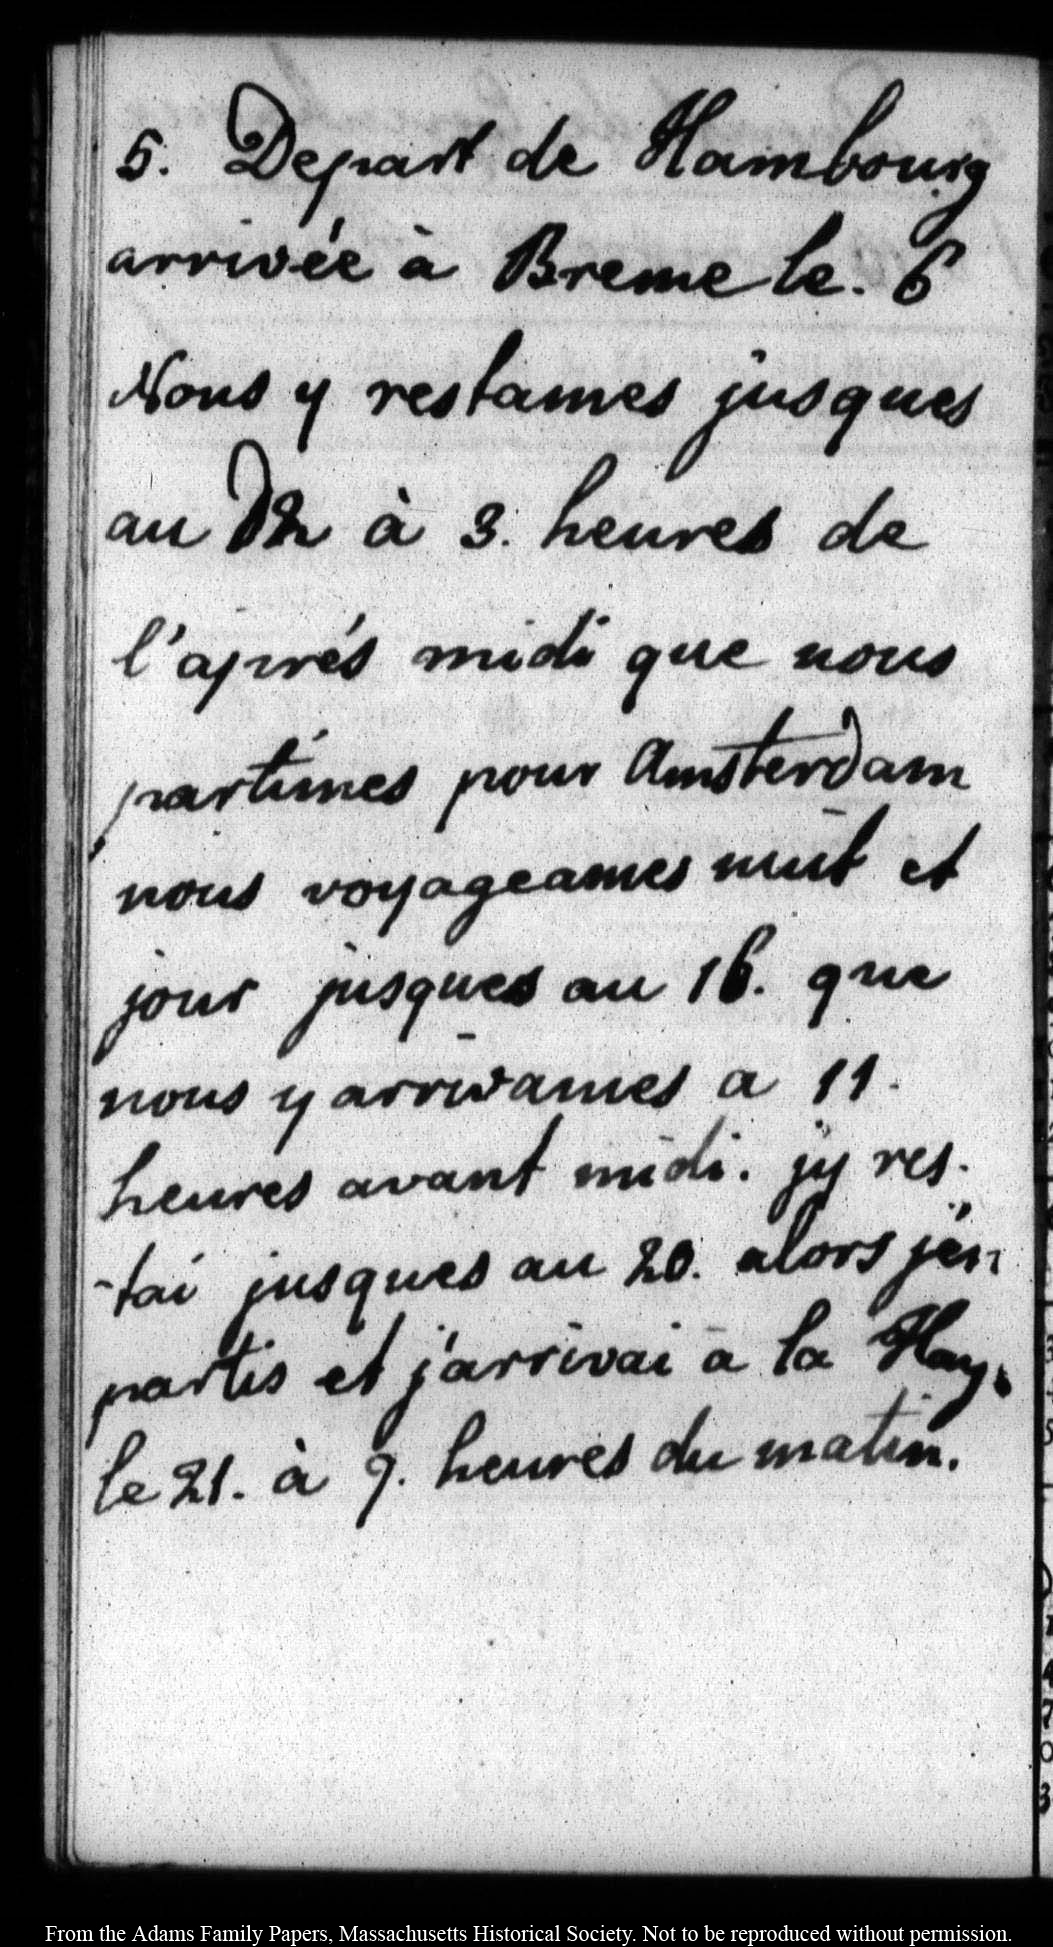 5. Depart de Hambourg
arrivée à Breme le. 6
Nous y restames jusques
au 12 à 3. heures de
l'aprés midi que nous
partimes pour Amsterdam
nous voyageames nuit et
jour jusques au 16. que
nous y arrivames a 11.
heures avant midi. j'y res-
-tai jusques au 20. alors j'en
partis et j'arrivai a la Haye
le 21. à 9. heures du matin.
From the Adams Family Papers, Massachusetts Historical Society. Not to be reproduced without permission.